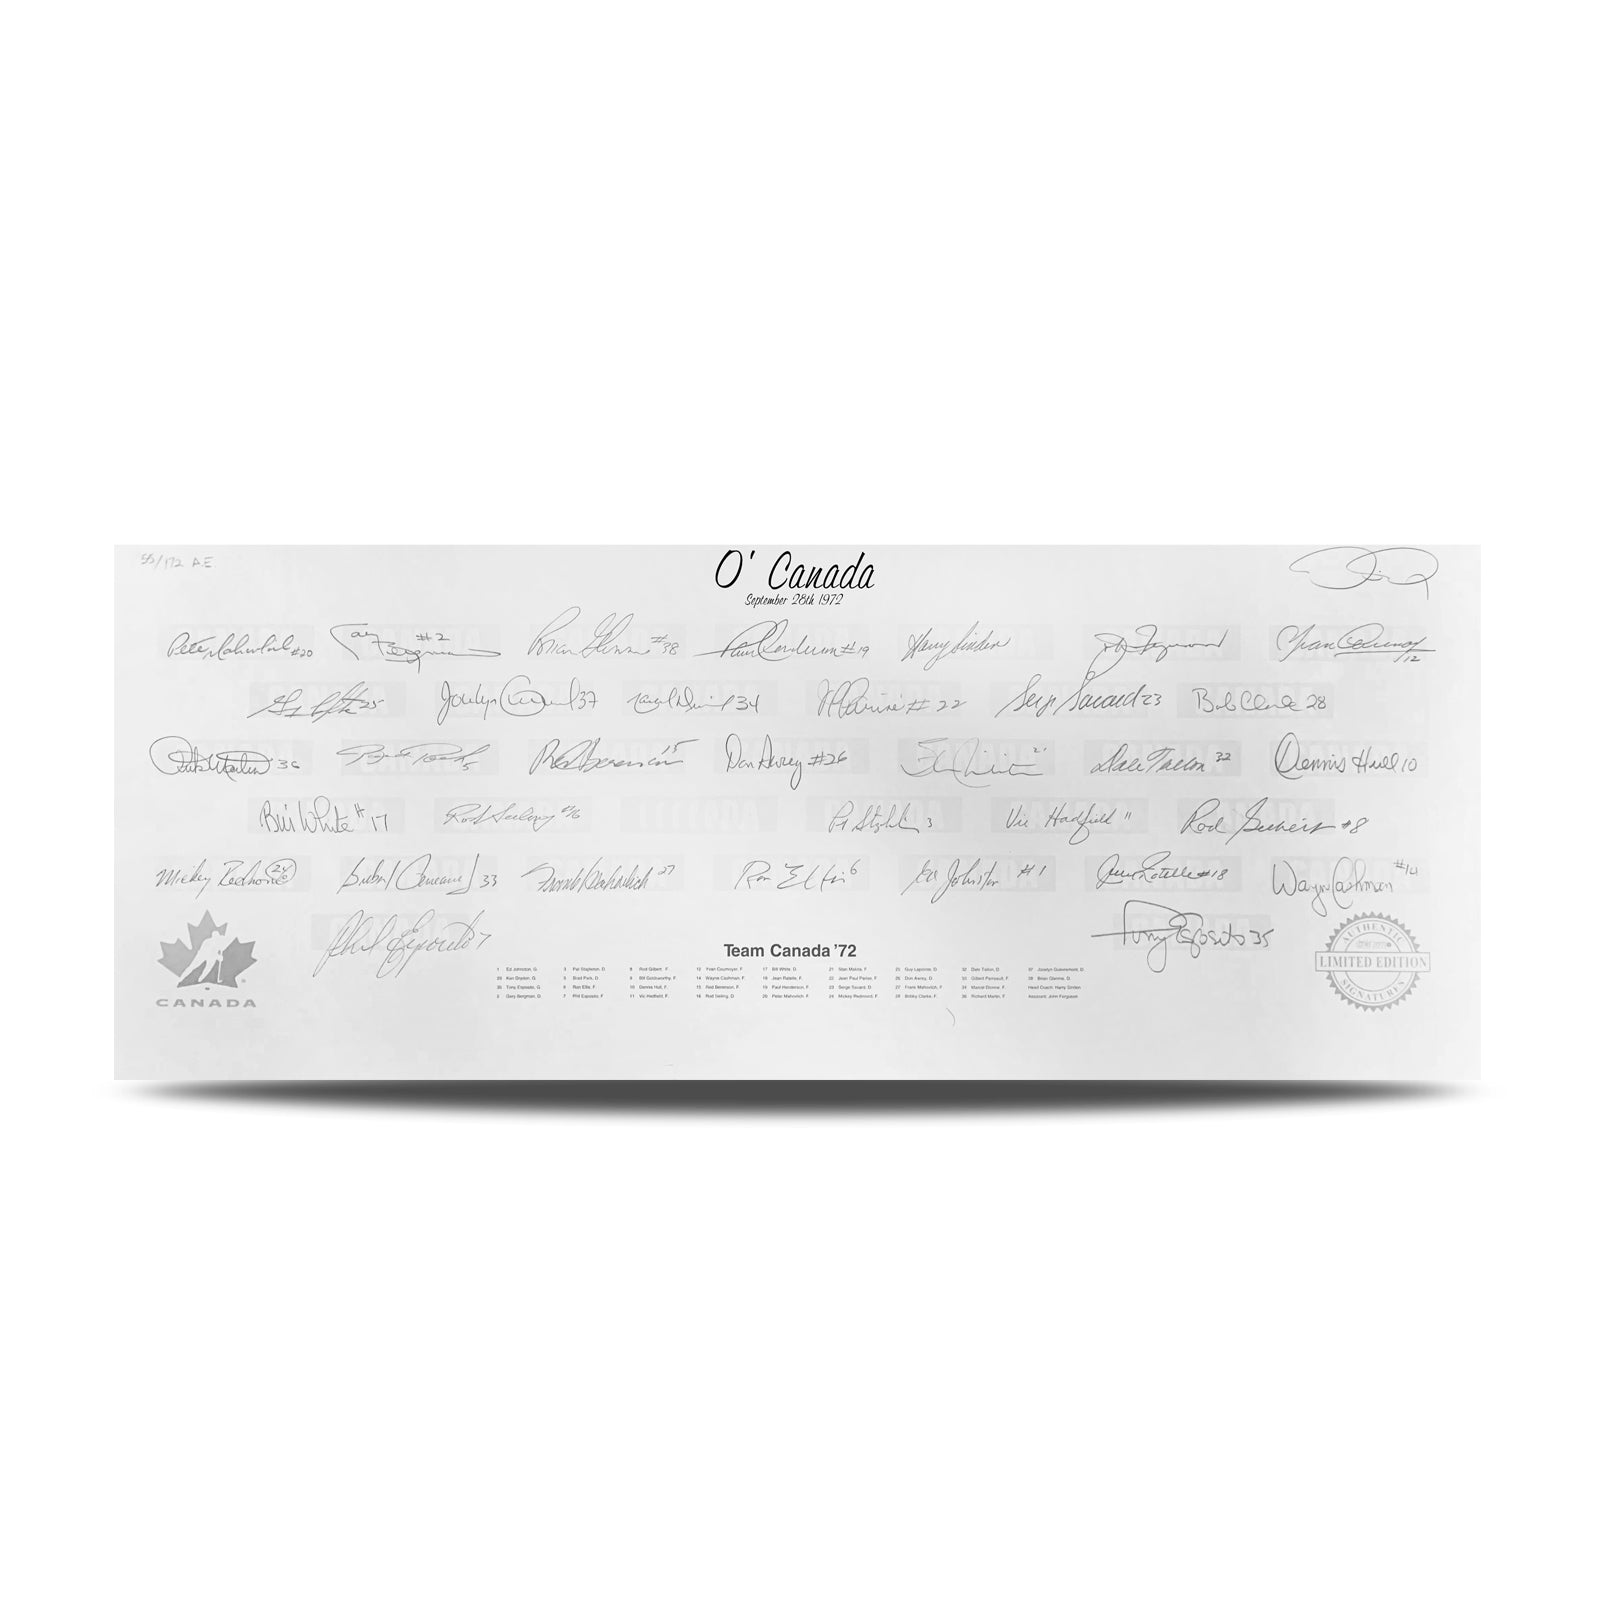 55/172 A.E.
O' Canada
September 28th 1972
Pete Mahovlich #20 Gary Bergman #2 Brian Glennie #38 Paul Henderson #19 Harry Sinden Yvan Cournoyer #12
25 Jocelyn Guevremont 37 Marcel Dionne 34 JP Parisé #22 Serge Savard 23 Bob Clarke 28
Rick Martin 36 Brad Park 5 Red Berenson 15 Don Awrey #26 21 Dale Tallon 32 Dennis Hull 10
Bill White #17 Rod Seiling #16 Pat Stapleton 3 Vic Hadfield 11 Rod Gilbert #8
Mickey Redmond 24 33 Frank Mahovlich 27 Ron Ellis 6 Ed Johnston #1 Jean Ratelle #18 Wayne Cashman #14
Phil Esposito 7 Tony Esposito 35
CANADA
Team Canada '72
1 Ed Johnston, G. 3 Pat Stapleton, D. 8 Rod Gilbert, F. 12 Yvan Cournoyer, F. 17 Bill White, D. 21 Stan Mikita, F. 25 Guy Lapointe, D. 32 Dale Tallon, D. 37 Jocelyn Guevremont, D.
29 Ken Dryden, G. 5 Brad Park, D. 9 Bill Goldsworthy, F. 14 Wayne Cashman, F. 18 Jean Ratelle, F. 22 Jean Paul Parise, F. 26 Don Awrey, D. 33 Gilbert Perreault, F. 38 Brian Glennie, D.
35 Tony Esposito, G. 6 Ron Ellis, F. 10 Dennis Hull, F. 15 Red Berenson, F. 19 Paul Henderson, F. 23 Serge Savard, D. 27 Frank Mahovlich, F. 34 Marcel Dionne, F. Head Coach: Harry Sinden
2 Gary Bergman, D. 7 Phil Esposito, F. 11 Vic Hadfield, F. 16 Rod Seiling, D. 20 Peter Mahovlich, F. 24 Mickey Redmond, F. 28 Bobby Clarke, F. 36 Richard Martin, F. Assistant: John Ferguson
AUTHENTIC
LIMITED EDITION
SIGNATURES